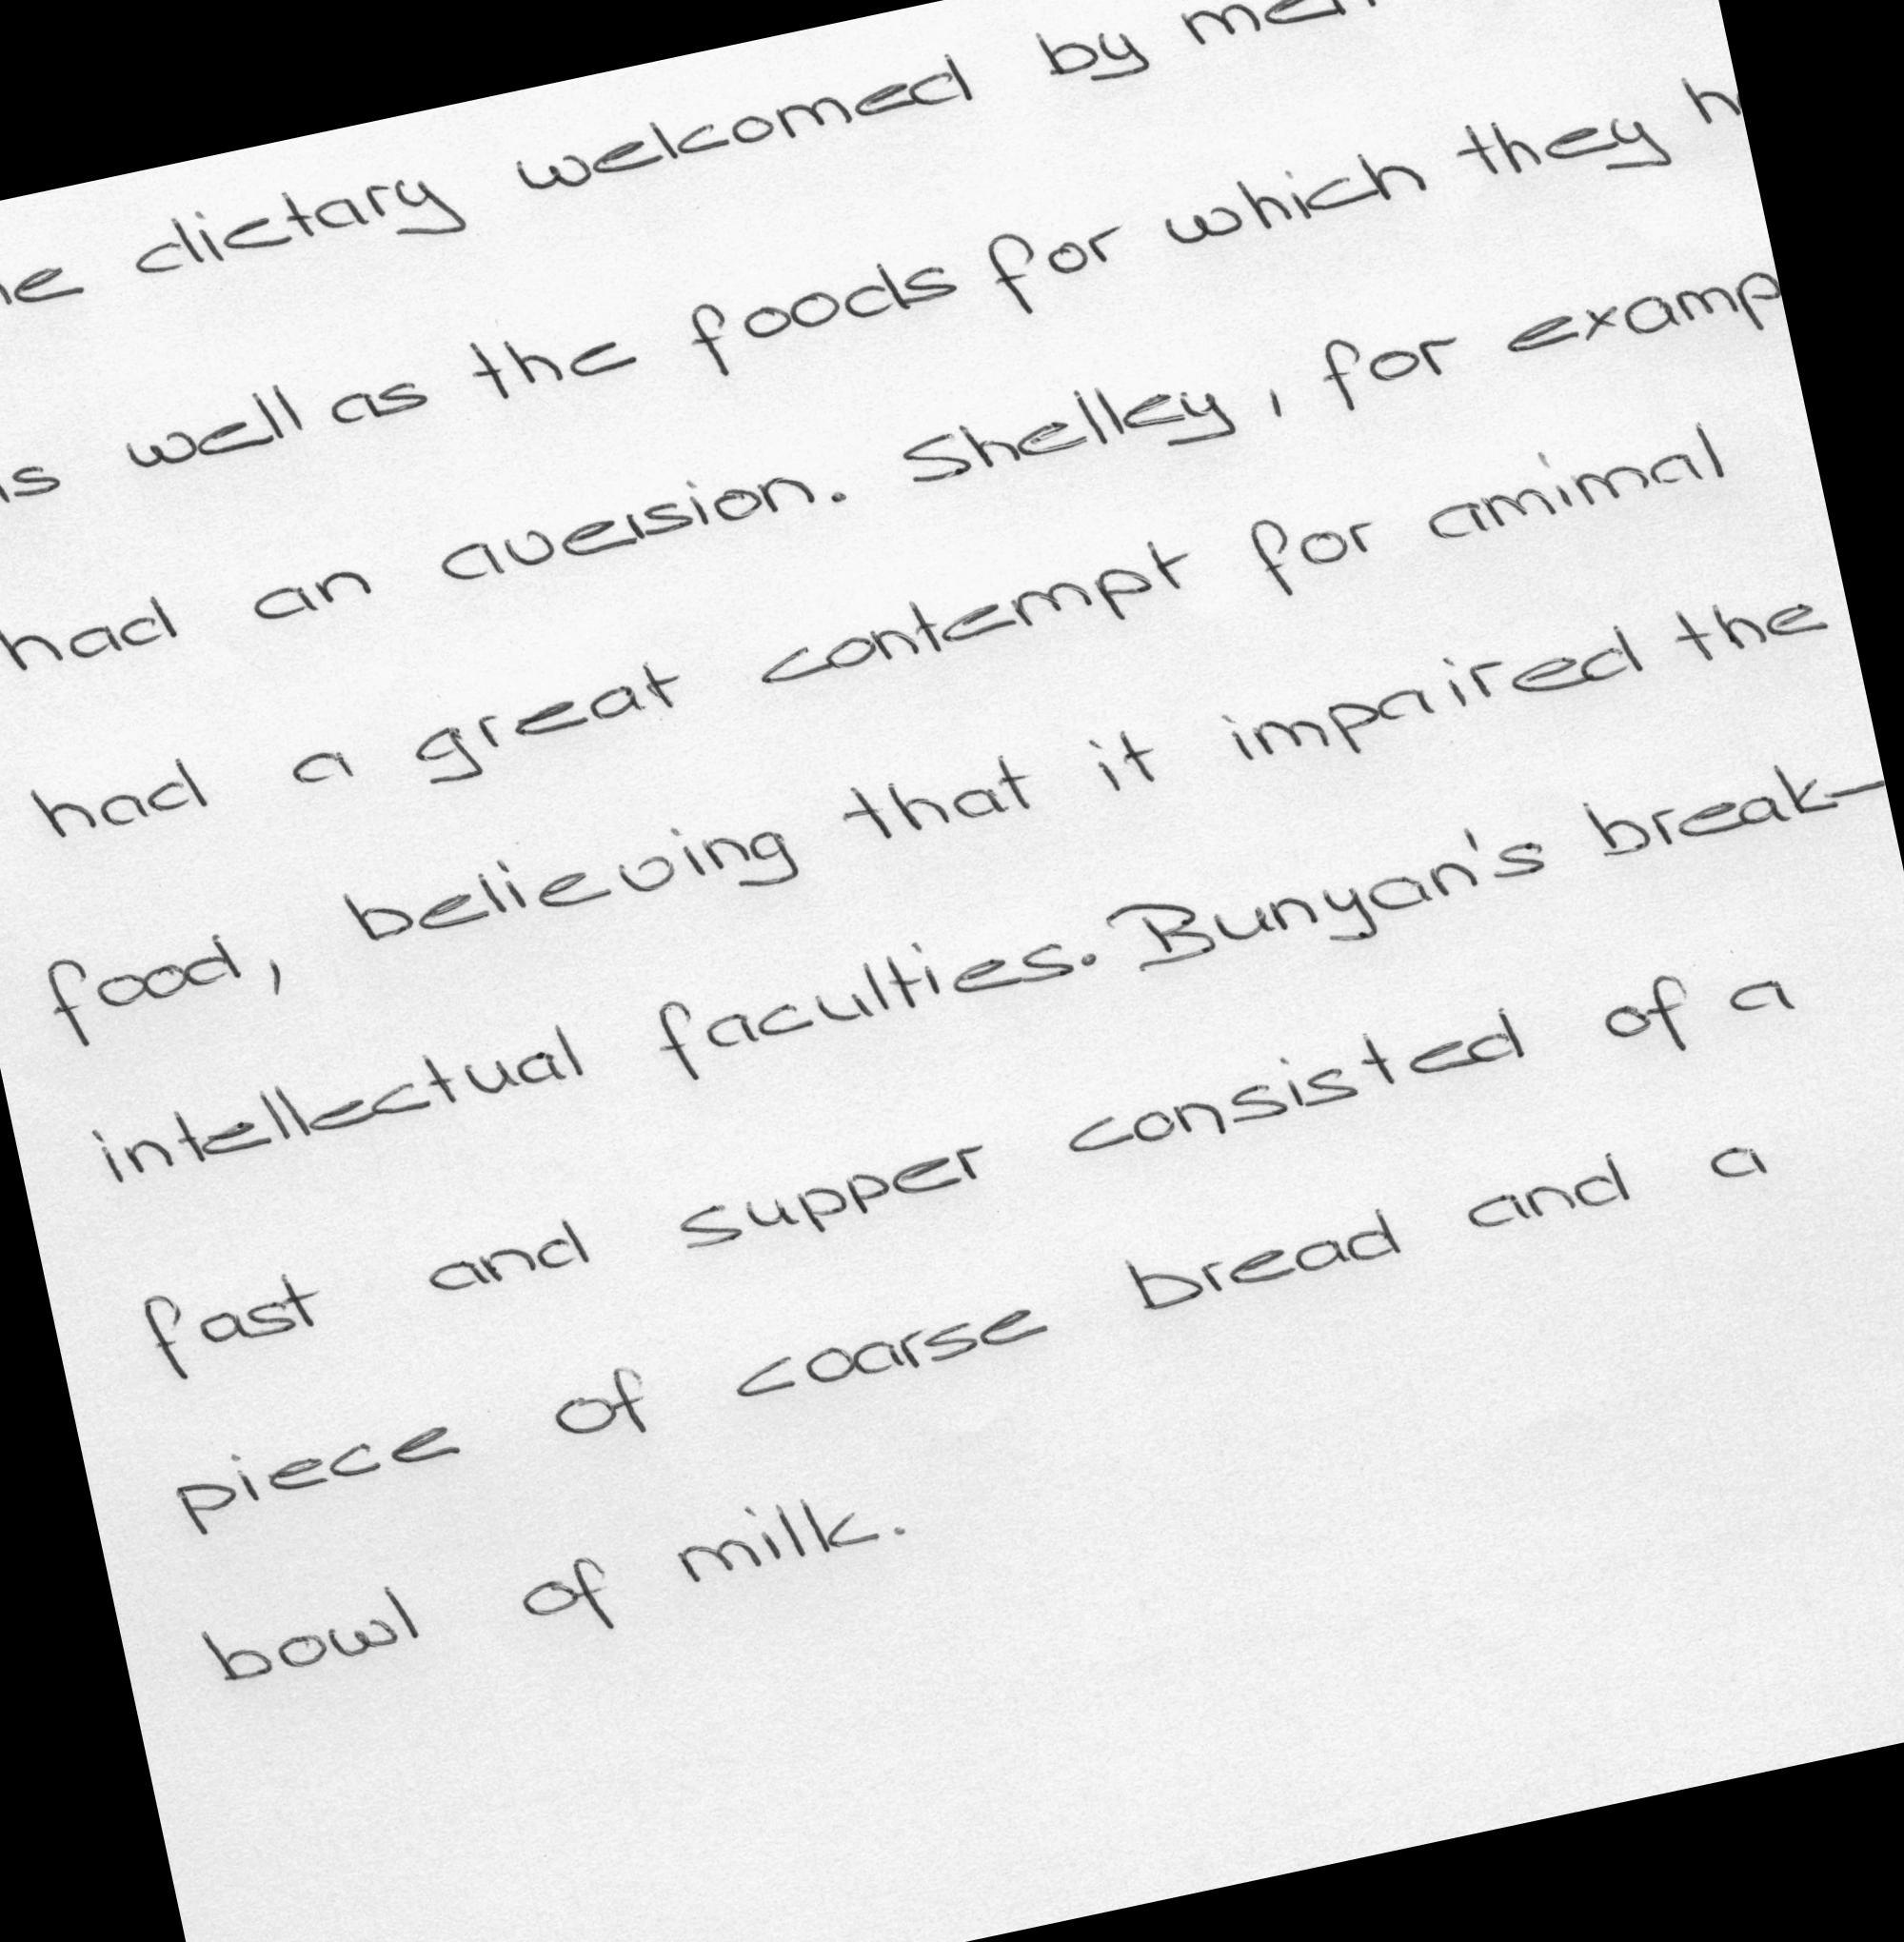 dietary welcomed by
well as the foods for which they
had an aversion. Shelley, for
had a great contempt for amimal
food, believing that it impaired the
intellectual faculties. Bunyan's break-
fast and supper consisted of a
piece of coarse bread and a
bowl of milk.